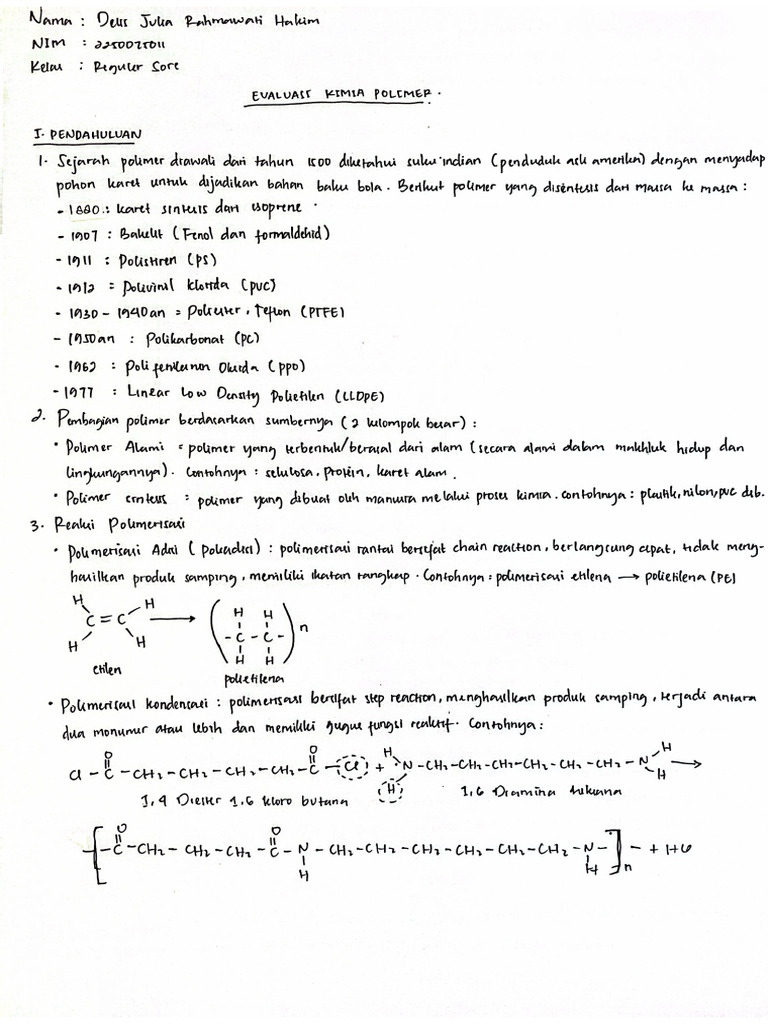 Nama : Deus Julia Rahmawati Hakim
NIM : 2250075011
Kelas : Reguler Sore
EVALUASI KIMIA POLIMER.
I. PENDAHULUAN
1. Sejarah polimer diawali dari tahun 1500 diketahui suku indian (penduduk asli amerika) dengan menyadap
pohon karet untuk dijadikan bahan baku bola. Berikut polimer yang disintesis dari massa ke massa :
- 1880 : karet sintesis dari isoprene
- 1907 : Bakelit (Fenol dan formaldehid)
- 1911 : Polistiren (PS)
- 1912 = Polivinil klorida (PVC)
- 1930 - 1940an = Poliester, Teflon (PTFE)
- 1950an : Polikarbonat (PC)
- 1962 : Polifenilenan Oksida (PPO)
- 1977 : Linear Low Density Polietilen (LLDPE)
2. Pembagian polimer berdasarkan sumbernya (2 kelompok besar) :
• Polimer Alami = polimer yang terbentuk/berasal dari alam (secara alami dalam makhluk hidup dan
lingkungannya). Contohnya : selulosa, protein, karet alam.
• Polimer sintesis : polimer yang dibuat oleh manusia melalui proses kimia. contohnya : plastik, nilon, pvc dsb.
3. Reaksi Polimerisasi
• Polimerisasi Adisi (Poliadisi) : polimerisasi rantai bersifat chain reaction, berlangsung cepat, tidak meng-
hasilkan produk samping, memiliki ikatan rangkap. Contohnya = polimerisasi etilena → polietilena (PE)
H H H H
C = C → ( - C - C - ) n
H H H H
etilen polietilena
• Polimerisasi kondensasi : polimerisasi bersifat step reaction, menghasilkan produk samping, terjadi antara
dua monumur atau lebih dan memiliki gugus fungsi reaktif. Contohnya :
O O H H
Cl - C - CH2 - CH2 - CH2 - CH2 - C - Cl + N - CH2 - CH2 - CH2 - CH2 - CH2 - CH2 - N →
H H
1,4 Diester 1.6 kloro butana 1,6 Diamina heksana
O O
[ - C - CH2 - CH2 - CH2 - C - N - CH2 - CH2 - CH2 - CH2 - CH2 - CH2 - N - ] n - + HCl
H H